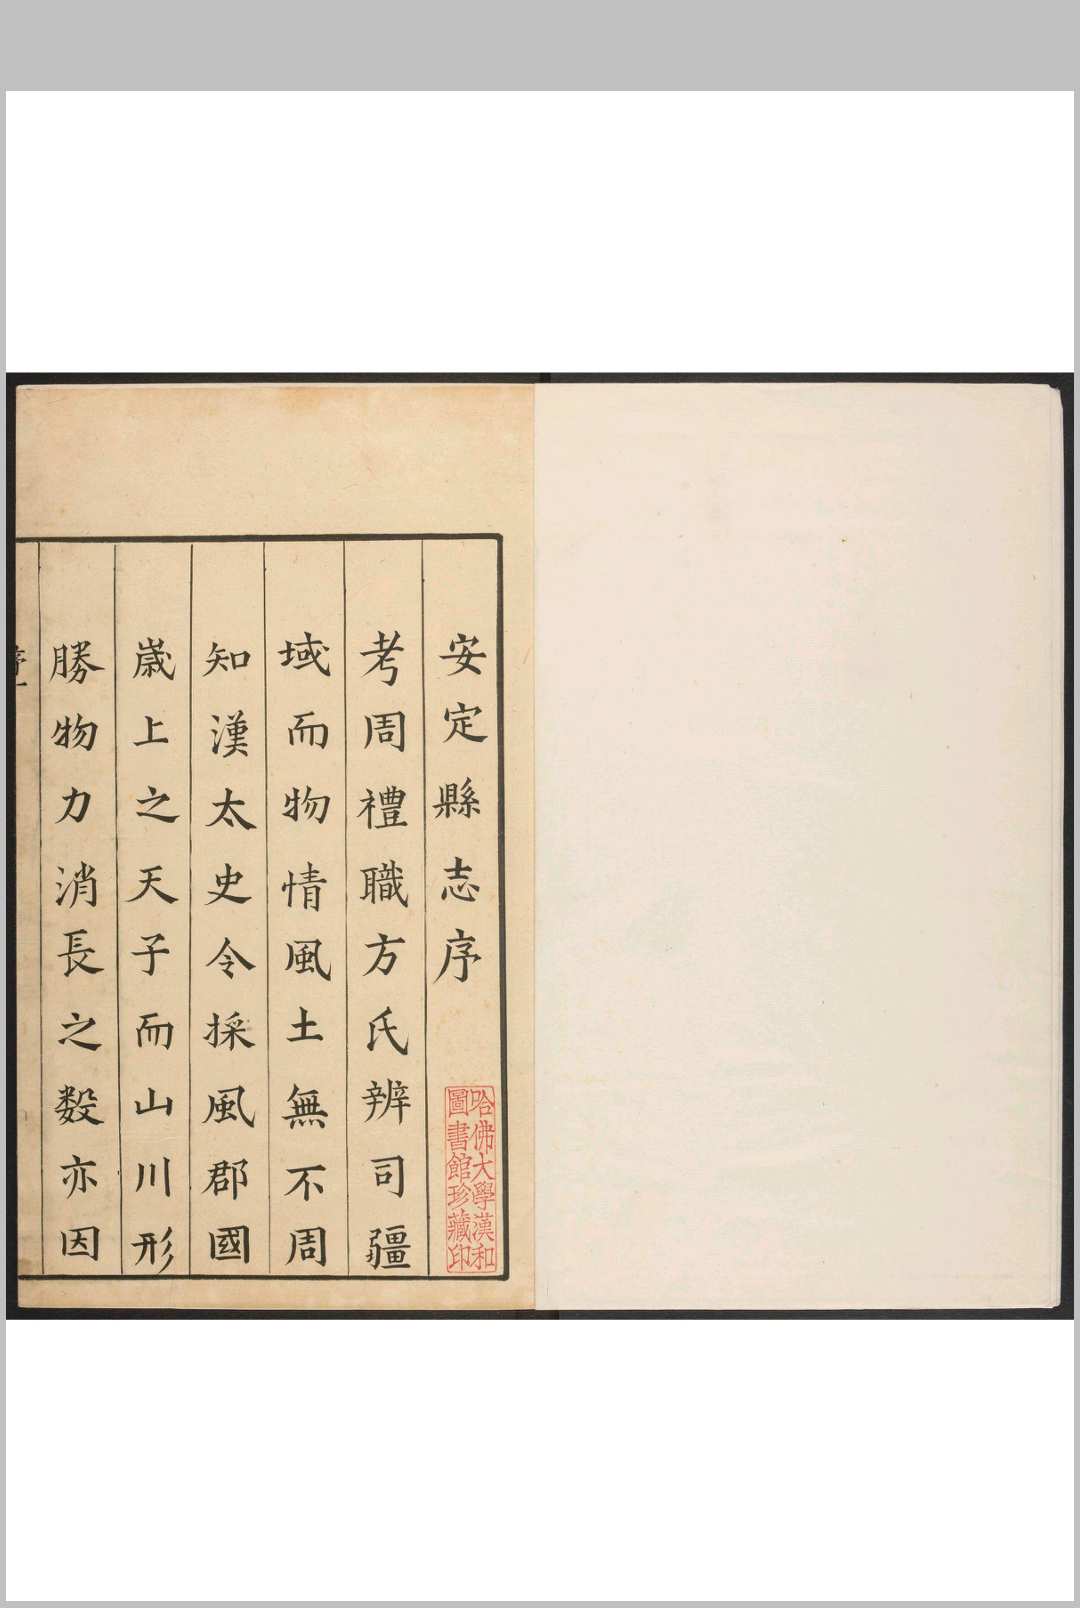 安定縣志序
考周禮職方氏辨司疆
域而物情風土無不周
知漢太史令採風郡國
歲上之天子而山川形
勝物力消長之數亦因
序一
哈佛大學漢和
圖書館珍藏印